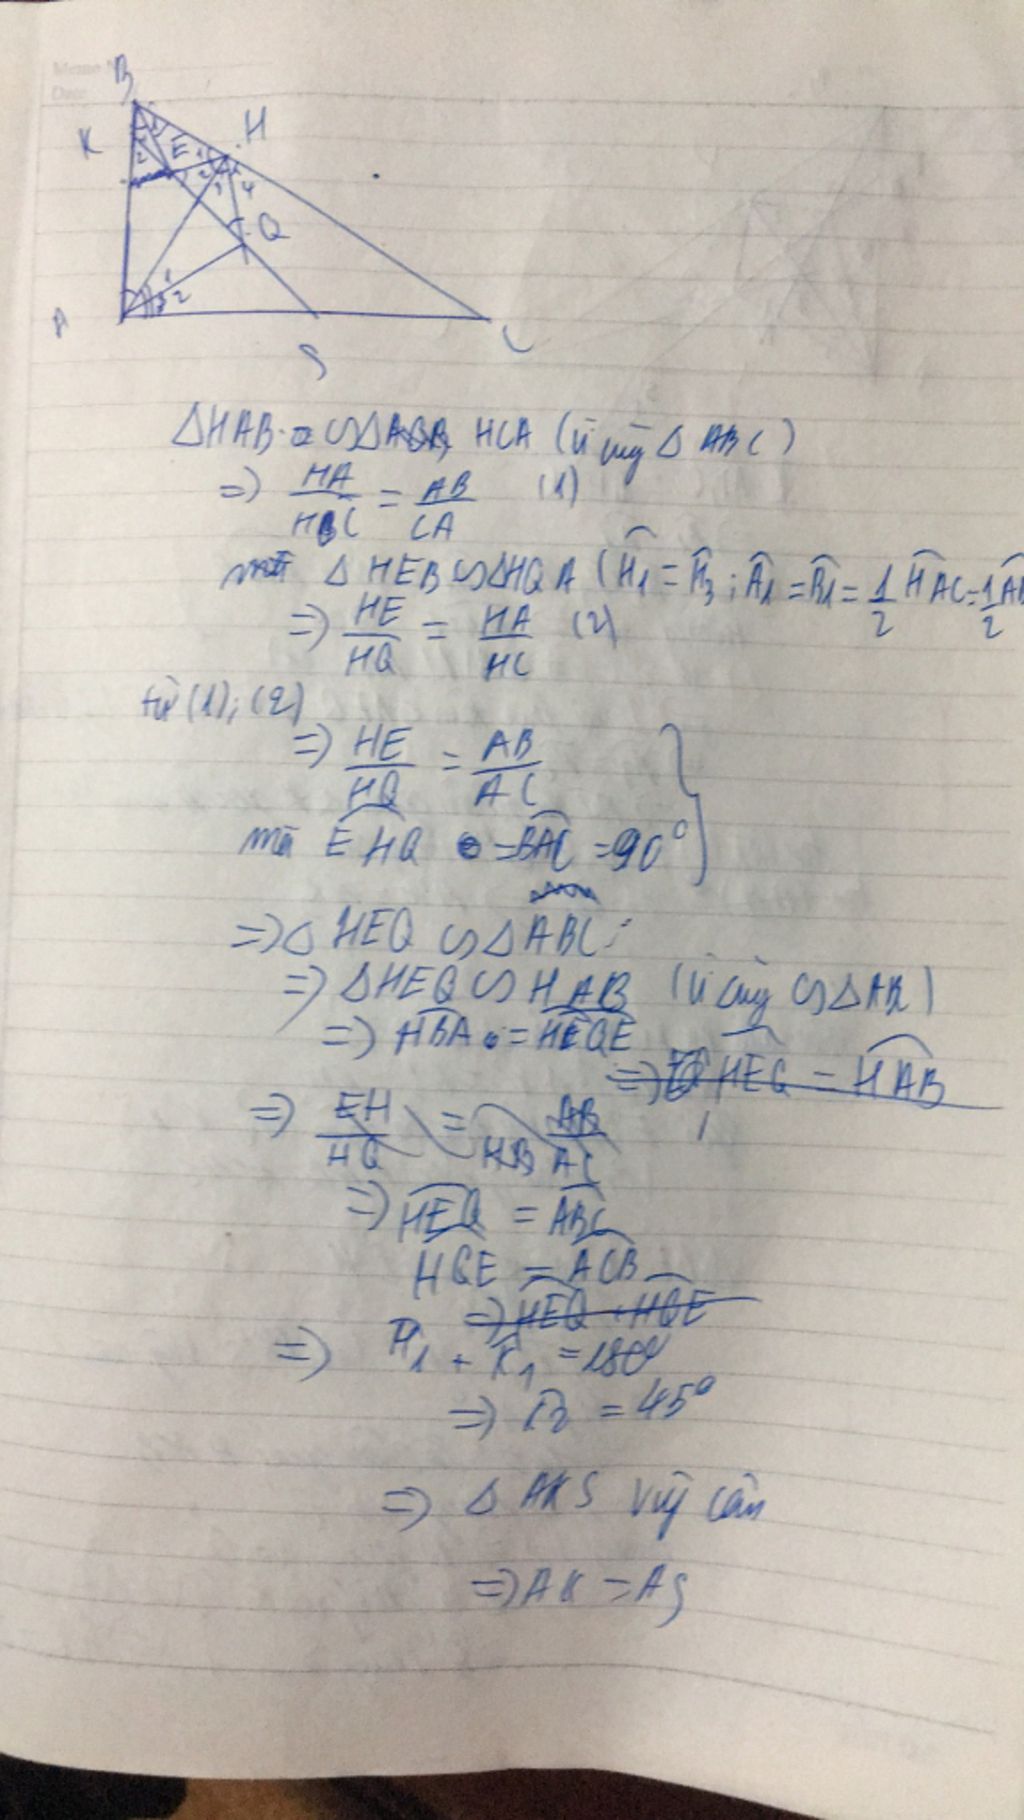 B
K
E
H
Q
A
S
C
ΔHAB ∽ Δ HCA (vì cùng Δ ABC)
=> HA/HC = AB/CA (1)
mà Δ HEB ∽ ΔHQA (H1 = H3 ; A1 = B1 = 1/2 HAC = 1/2
=> HE/HQ = HA/HC (2)
từ (1); (2)
=> HE/HQ = AB/AC
mà EHQ = BAC = 90°
=> Δ HEQ ∽ Δ ABC
=> ΔHEQ ∽ HAB (vì cùng ∽
=> HBA = HEQE
=> HEQ = HAB
=> EH/HQ = AB/AC
=> HEQ = ABC
HQE = ACB
=> HEQ HQE
=> + K1 = 180°
=> = 45°
=> Δ AKS vg cân
=> AK = AS